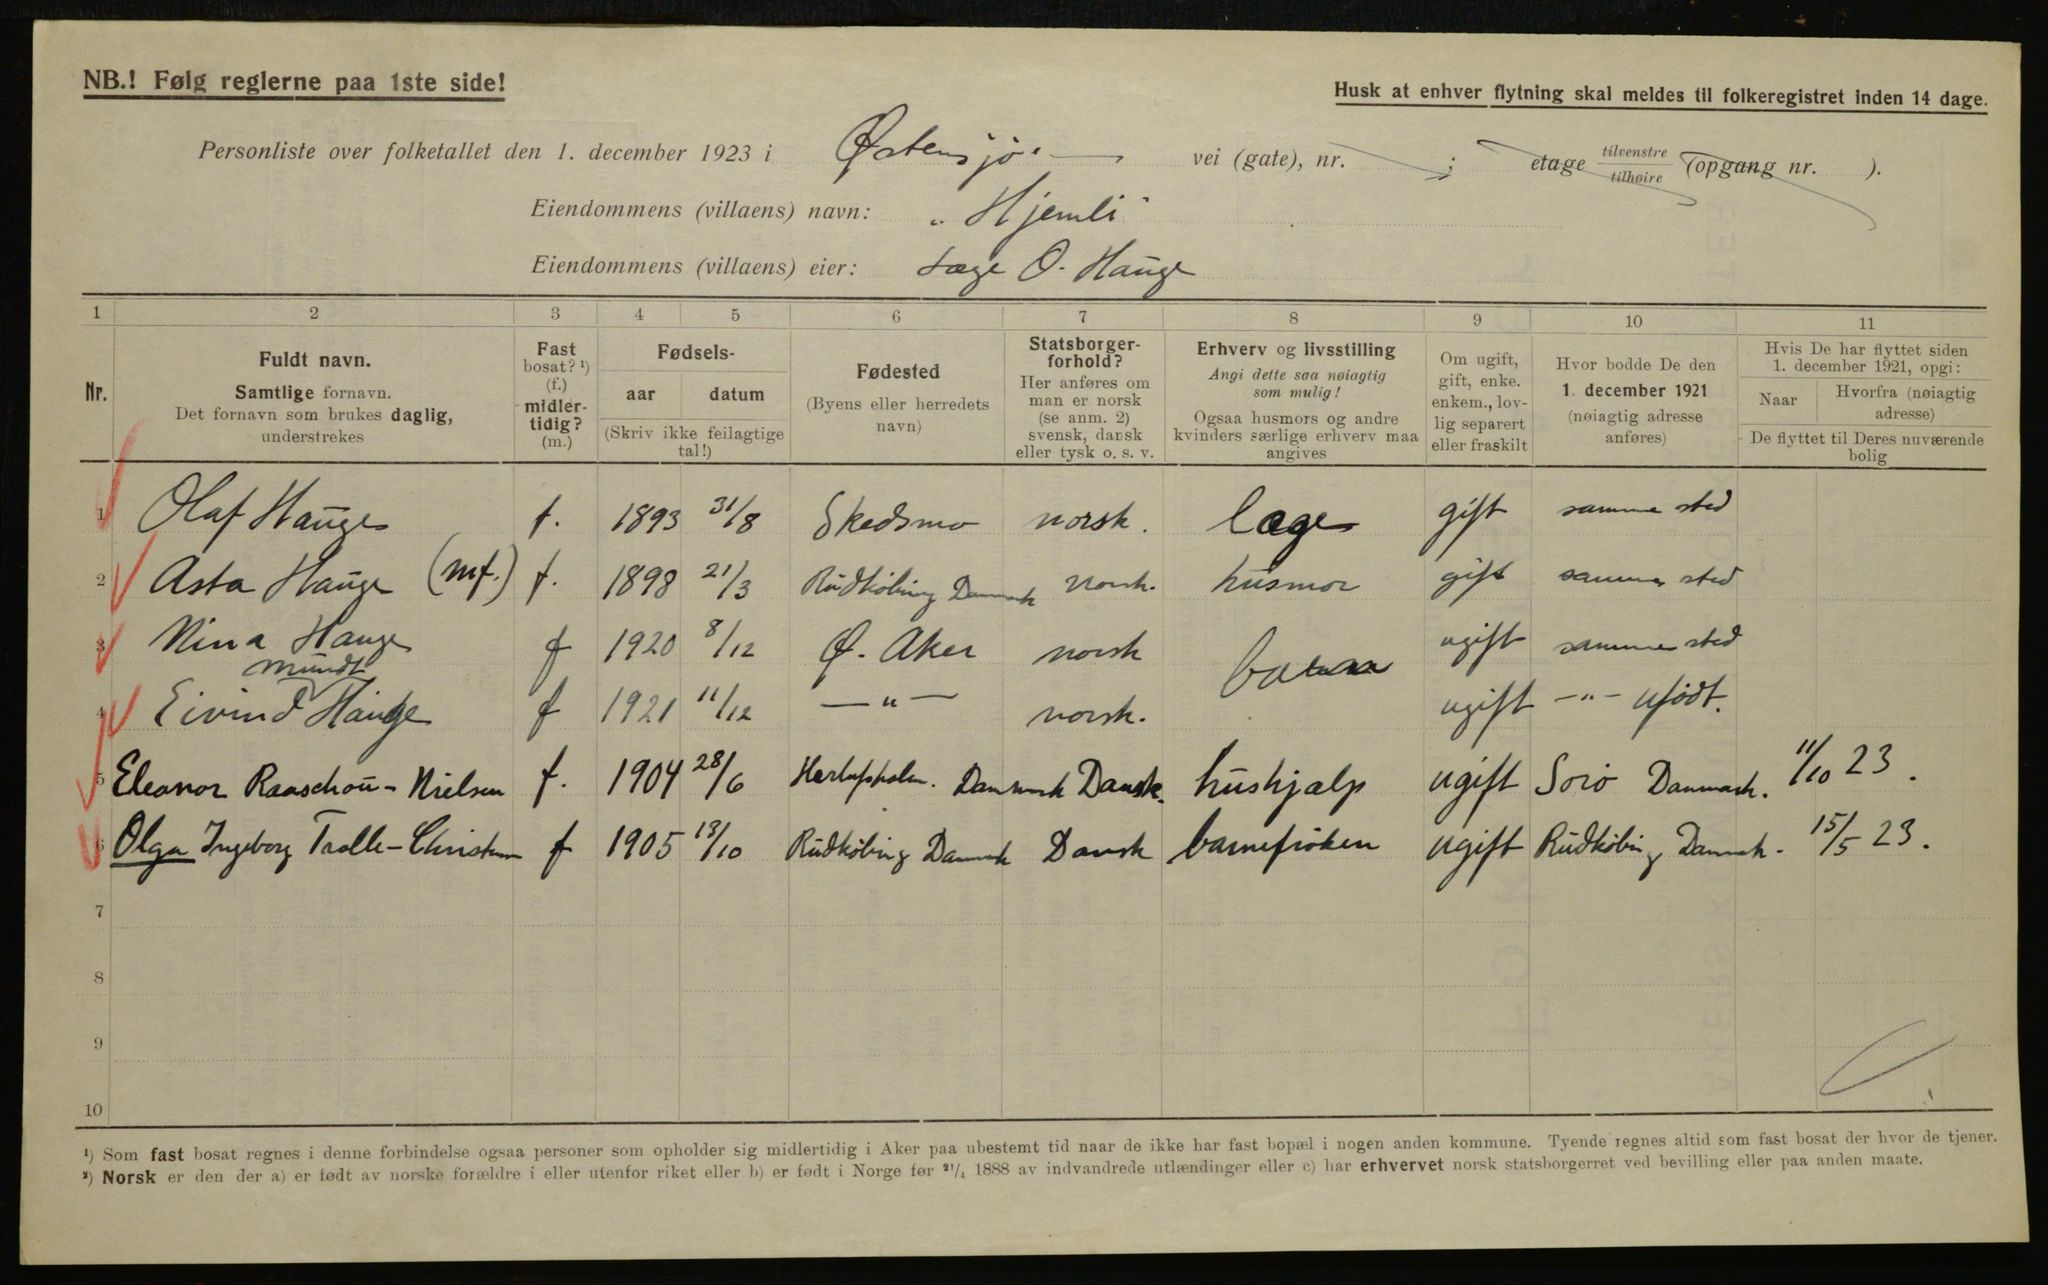 NB.! Følg reglerne paa 1ste side!
Husk at enhver flytning skal meldes til folkeregistret inden 14 dage.
Personliste over folketallet den 1. december 1923 i Østensjø vei (gate), nr. ; etage tilvenstre tilhøire (opgang nr. ).
Eiendommens (villaens) navn: „Hjemli"
Eiendommens (villaens) eier: Læge O. Hauge
1 2 3 4 5 6 7 8 9 10 11
Nr.
Fuldt navn.
Samtlige fornavn.
Det fornavn som brukes daglig,
understrekes
Fast
bosat? ¹)
(f.)
midler-
tidig?
(m.)
Fødsels-
aar datum
(Skriv ikke feilagtige
tal!)
Fødested
(Byens eller herredets
navn)
Statsborger-
forhold?
Her anføres om
man er norsk
(se anm. 2)
svensk, dansk
eller tysk o. s. v.
Erhverv og livsstilling
Angi dette saa nøiagtig
som mulig!
Ogsaa husmors og andre
kvinders særlige erhverv maa
angives
Om ugift,
gift, enke.
enkem., lov-
lig separert
eller fraskilt
Hvor bodde De den
1. december 1921
(nøiagtig adresse
anføres)
Hvis De har flyttet siden
1. december 1921, opgi:
Naar Hvorfra (nøiagtig
adresse)
De flyttet til Deres nuværende
bolig
1 Olaf Hauge f. 1893 31/8 Skedsmo norsk. læge gift samme sted
2 Asta Hauge (mf.) f. 1898 21/3 Rudkøbing Danmark Norsk. husmor gift samme sted
3 Nina Hauge f 1920 8/12 Ø. Aker norsk barn ugift samme sted
Mundt
4 Eivind Hauge f 1921 11/12 — " — norsk. ugift — " — ufødt.
5 Eleonor Raaschou-Nielsen f. 1904 28/6 Herlufsholm. Danmark Dansk. hushjælp ugift Sorø Danmark. 11/10 23.
6 Olga Ingeborg Trolle-Christensen f 1905 13/10 Rudkøbing Danmark Dansk barnefrøken ugift Rudkøbing Danmark. 15/5 23.
7
8
9
10
¹) Som fast bosat regnes i denne forbindelse ogsaa personer som opholder sig midlertidig i Aker paa ubestemt tid naar de ikke har fast bopæl i nogen anden kommune. Tyende regnes altid som fast bosat der hvor de tjener.
²) Norsk er den der a) er født av norske forældre i eller utenfor riket eller b) er født i Norge før 21/4 1888 av indvandrede utlændinger eller c) har erhvervet norsk statsborgerret ved bevilling eller paa anden maate.